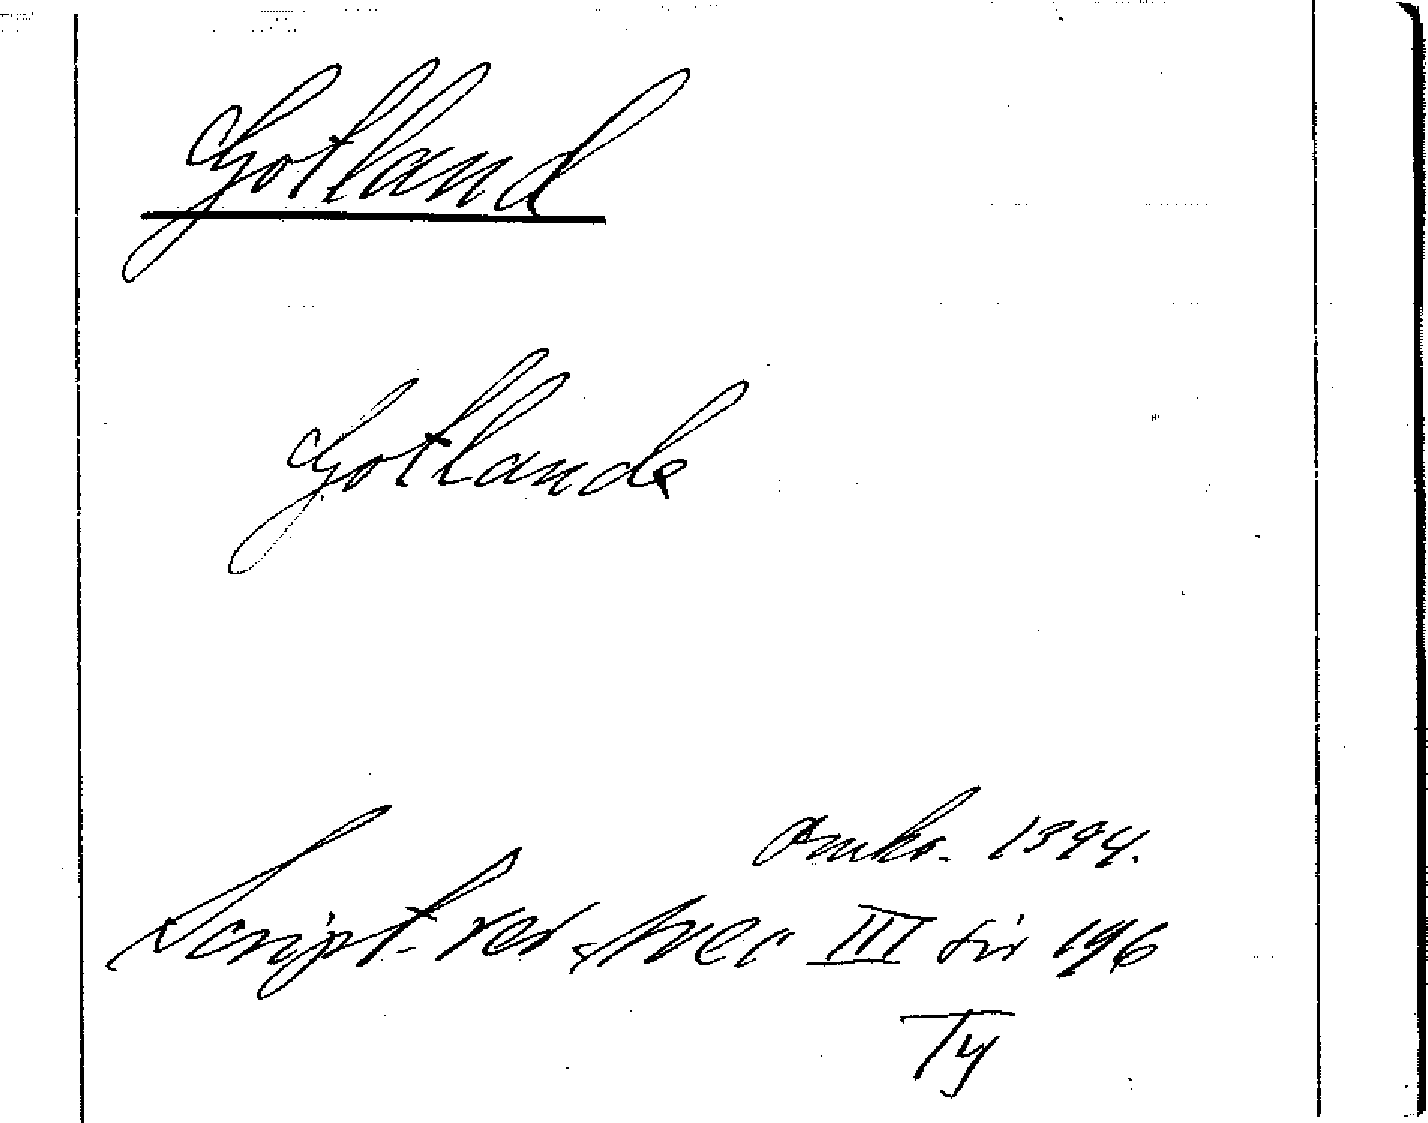 Gotland
Gotlande
omkr. 1394.
Script. rer. svec III sid 196
Ty